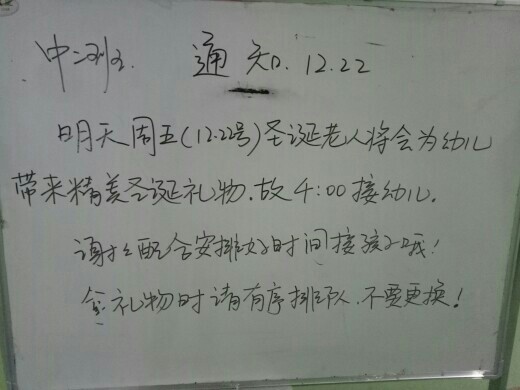 中班 通知 12.22
明天周五(12.22号)圣诞老人将会为幼儿
带来精美圣诞礼物.故4:00接幼儿.
配合安排好时间接孩子哦!
礼物时请有序排队.不要更换!